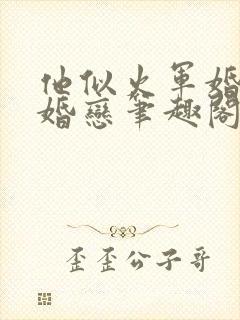 他似火軍婚
婚戀筆趣閣
歪歪公子哥